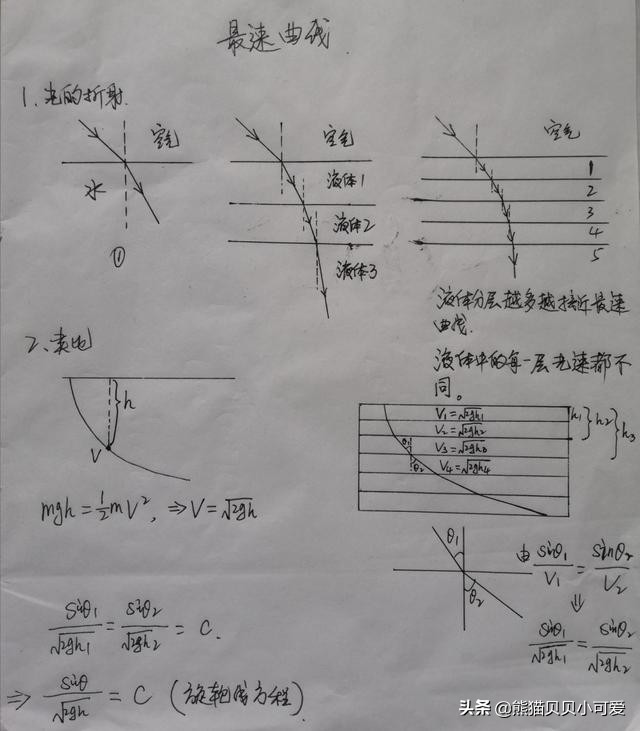 最速曲线
1、光的折射.
空气
水
①
空气
液体1
液体2
液体3
空气
1
2
3
4
5
液体分层越多越接近最速
曲线.
液体中的每一层光速都不
同。
2、类比
h
V
mgh = 1/2 mV², ⇒ V = √2gh
V₁ = √2gh₁
V₂ = √2gh₂
V₃ = √2gh₃
V₄ = √2gh₄
h₁ h₂ h₃
θ₁
θ₂
θ₁
θ₂
由 sinθ₁/V₁ = sinθ₂/V₂
⇓
sinθ₁/√2gh₁ = sinθ₂/√2gh₂
sinθ₁/√2gh₁ = sinθ₂/√2gh₂ = C.
⇒ sinθ/√2gh = C (旋轮线方程).
头条 @熊猫贝贝小可爱